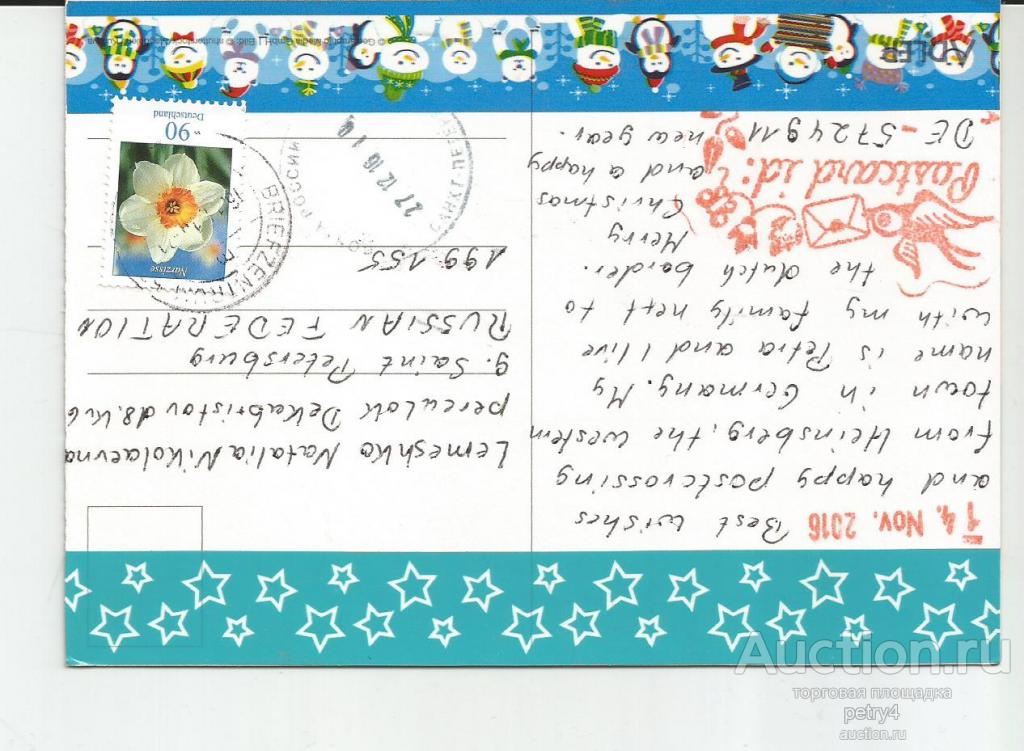 14. Nov. 2016
Best wishes
and happy postcrossing
from Heinsberg, the western
town in Germany. My
name is Petra and I live
with my family next to
the dutch border.
Merry
Christmas
and a happy
new year.
Postcard id:
DE-5724911
Lemeshko Natalia Nikolaevna
pereulok Dekabristov d8.K.6
g. Saint Petersburg
RUSSIAN FEDERATION
199 155
Narzisse
90
Deutschland
BRIEFZENTRUM
РОССИИ
27 12 16 14
ADLER
Auction.ru
торговая площадка
petry4
auction.ru